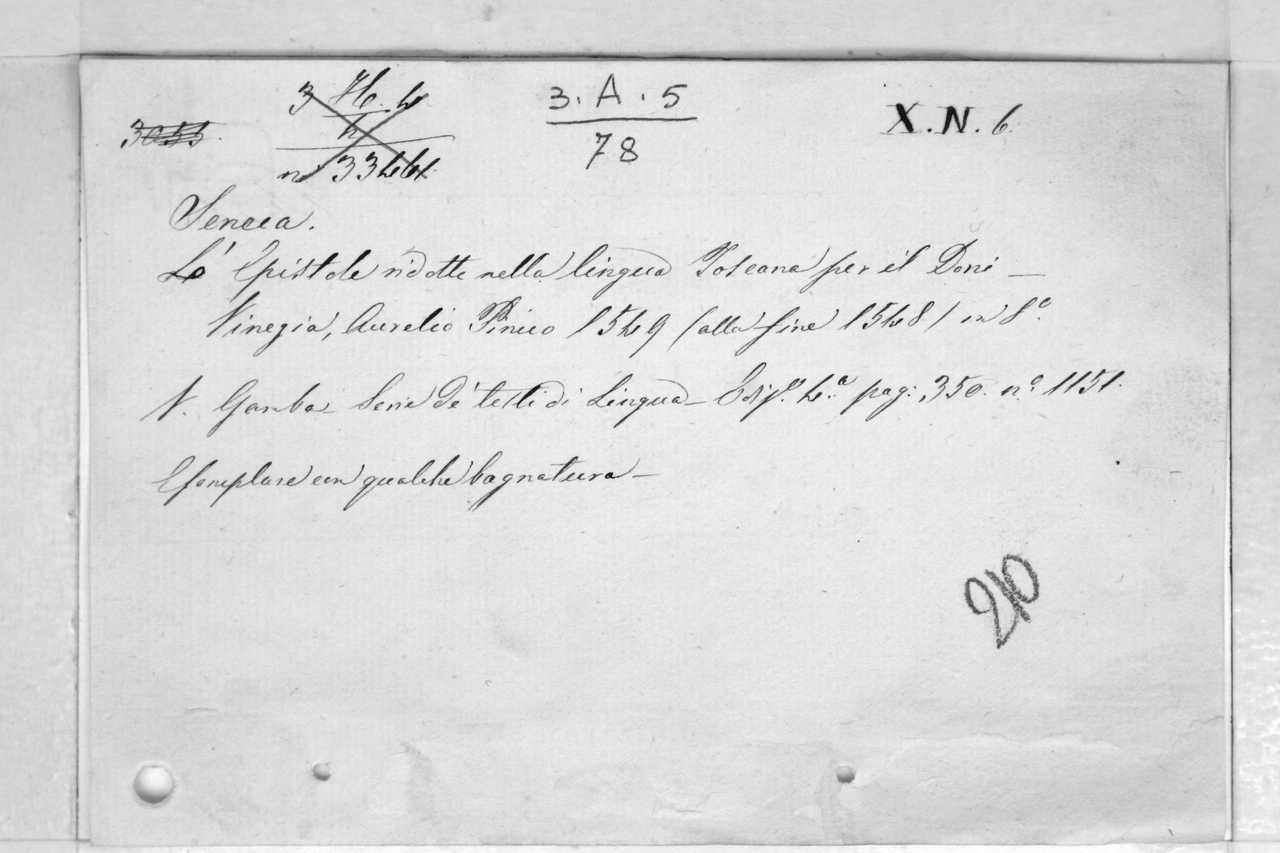 3 H. 4
3.A.5
X.N.6
3055
4
78
n° 33464
Seneca.
L' Epistole ridotte nella lingua Toscana per il Doni —
Vinegia, Aurelio Pincio 1549 (alla fine 1548) in 8°
V. Gamba Serie de' testi di Lingua — Ediz.e 4.a pag: 350. n.° 1151.
Esemplare con qualche bagnatura —
210